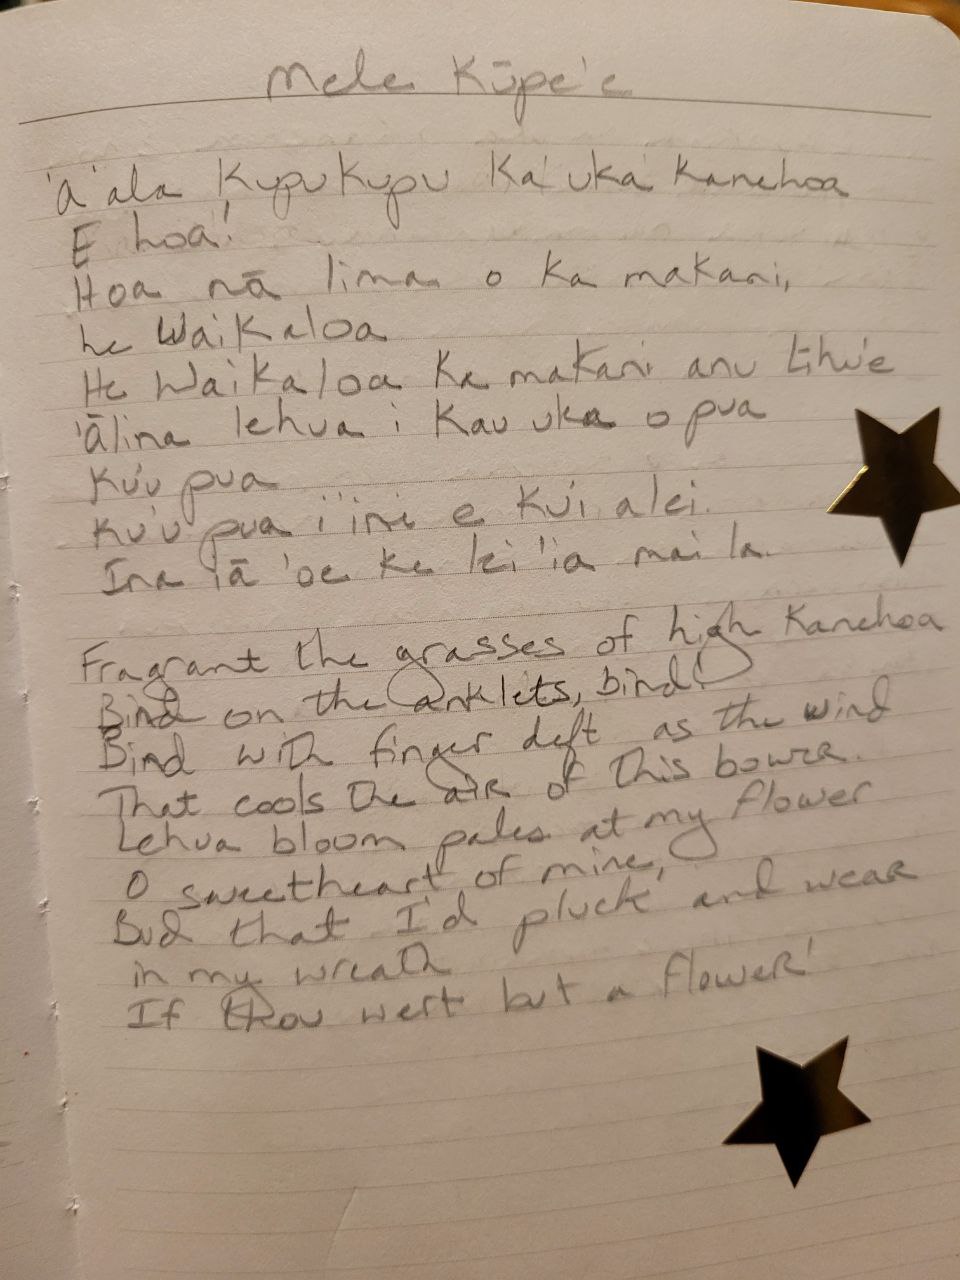 Mele Kūpe'e
'a'ala Kupukupu Ka'uka' Kanehoa
E hoa!
Hoa nā lima o ka makani,
he Waikaloa
He Waikaloa Ka makani anu Līhu'e
'ālina lehua i Kau uka o pua
Ku'u pua
Ku'u pua i'ini e Ku'i a lei.
Ina iā 'oe ke lei 'ia mai la.
Fragrant the grasses of high Kanehoa
Bind on the anklets, bind!
Bind with finger deft as the wind
That cools the air of this bower.
Lehua bloom pales at my flower
O sweetheart of mine,
Bud that I'd pluck and wear
in my wreath
If thou wert but a flower!